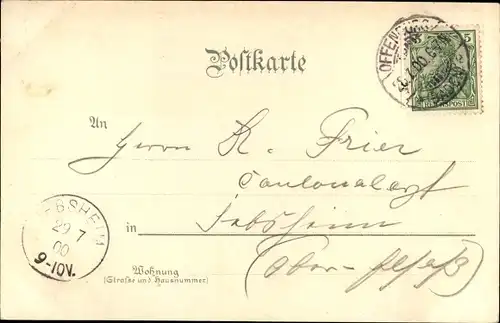 Postkarte
OFFENBURG
5
REICHSPOST
An
Herrn K. Frier
Cantonalarzt
in Jebsheim
(Ober-Elsaß)
EBSHEIM
29 7
00
9-10V.
Wohnung
(Straße und Hausnummer)